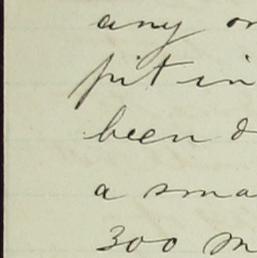 any
pit in
been
a sma
300 m